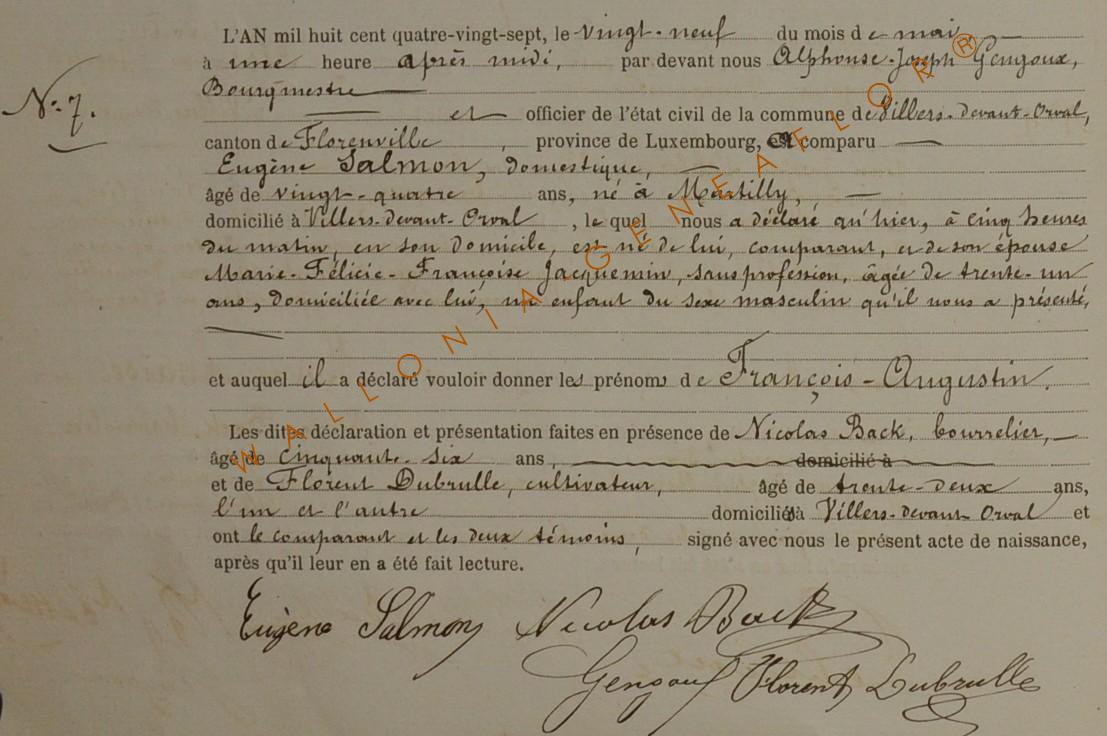 L'AN mil huit cent quatre-vingt-sept, le vingt-neuf du mois de mai
à une heure après midi, par devant nous Alphonse-Joseph Gengoux,
Bourgmestre
N° 7.
et officier de l'état civil de la commune de Villers-devant-Orval,
canton de Florenville, province de Luxembourg, comparu
Eugène Salmon, domestique,
âgé de vingt-quatre ans, né à Martilly,
domicilié à Villers-devant-Orval, lequel nous a déclaré qu'hier, à cinq heures
du matin, en son domicile, est né de lui, comparant, et de son épouse
Marie-Félicie-Françoise Jacquemin, sans profession, âgée de trente-un
ans, domiciliée avec lui, un enfant du sexe masculin qu'il nous a présenté,
et auquel il a déclaré vouloir donner les prénoms de François-Augustin.
Les dites déclaration et présentation faites en présence de Nicolas Back, bourrelier,
âgé de cinquante-six ans, domicilié à
et de Florent Dubrulle, cultivateur, âgé de trente-deux ans,
l'un et l'autre domiciliés à Villers-devant-Orval et
ont le comparant et les deux témoins, signé avec nous le présent acte de naissance,
après qu'il leur en a été fait lecture.
Eugène Salmon Nicolas Back
Gengoux Florent Dubrulle
WALLONIA GENEAFLOR®